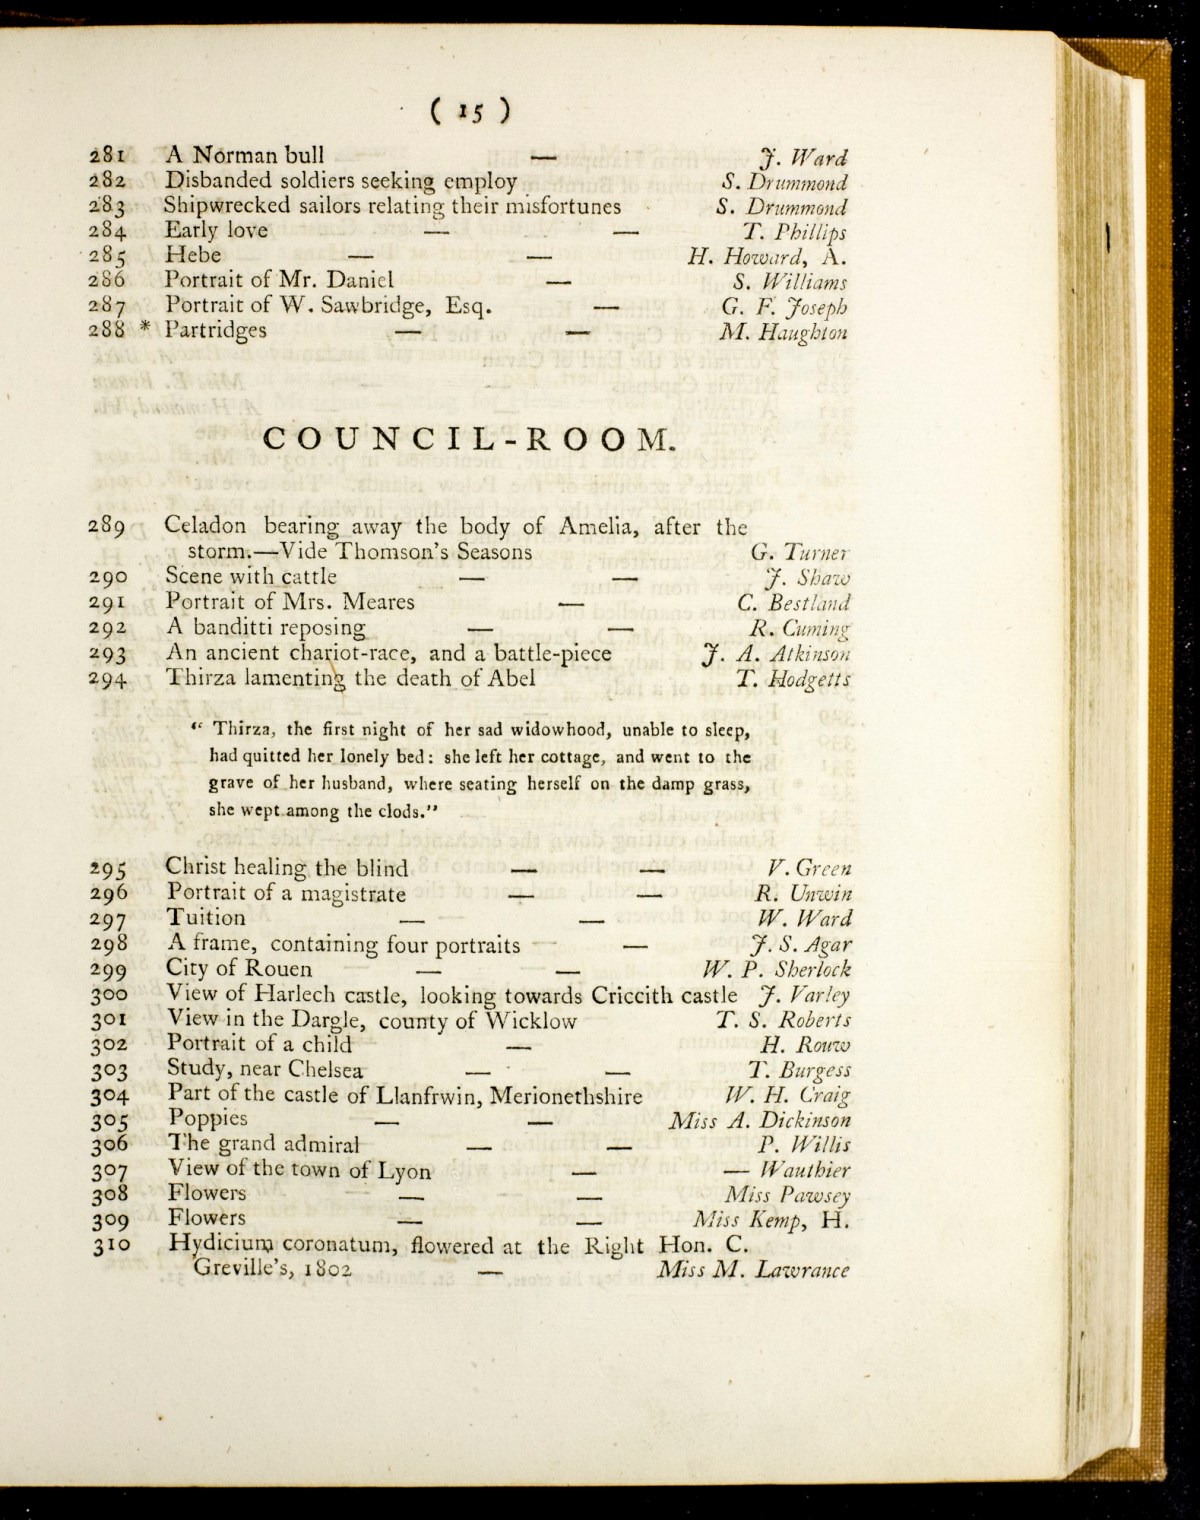 ( 15 )
281 A Norman bull — J. Ward
282 Disbanded soldiers seeking employ S. Drummond
283 Shipwrecked sailors relating their misfortunes S. Drummond
284 Early love — — T. Phillips
285 Hebe — — H. Howard, A.
286 Portrait of Mr. Daniel — S. Williams
287 Portrait of W. Sawbridge, Esq. — G. F. Joseph
288 * Partridges — — M. Haughton
COUNCIL-ROOM.
289 Celadon bearing away the body of Amelia, after the
storm.—Vide Thomson's Seasons G. Turner
290 Scene with cattle — — J. Shaw
291 Portrait of Mrs. Meares — C. Bestland
292 A banditti reposing — — R. Cuming
293 An ancient chariot-race, and a battle-piece J. A. Atkinson
294 Thirza lamenting the death of Abel T. Hodgetts
“ Thirza, the first night of her sad widowhood, unable to sleep,
had quitted her lonely bed: she left her cottage, and went to the
grave of her husband, where seating herself on the damp grass,
she wept among the clods.”
295 Christ healing the blind — — V. Green
296 Portrait of a magistrate — — R. Unwin
297 Tuition — — W. Ward
298 A frame, containing four portraits — J. S. Agar
299 City of Rouen — — W. P. Sherlock
300 View of Harlech castle, looking towards Criccith castle J. Varley
301 View in the Dargle, county of Wicklow T. S. Roberts
302 Portrait of a child — H. Rouw
303 Study, near Chelsea — — T. Burgess
304 Part of the castle of Llanfrwin, Merionethshire W. H. Craig
305 Poppies — — Miss A. Dickinson
306 The grand admiral — — P. Willis
307 View of the town of Lyon — — Wauthier
308 Flowers — — Miss Pawsey
309 Flowers — — Miss Kemp, H.
310 Hydicium coronatum, flowered at the Right Hon. C.
Greville's, 1802 — Miss M. Lawrance